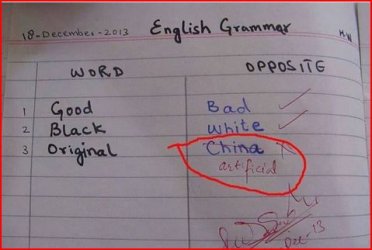 18-December-2013 English Grammar H W
WORD OPPOSITE
1 Good Bad
2 Black White
3 Original China
artificial
Dec-13